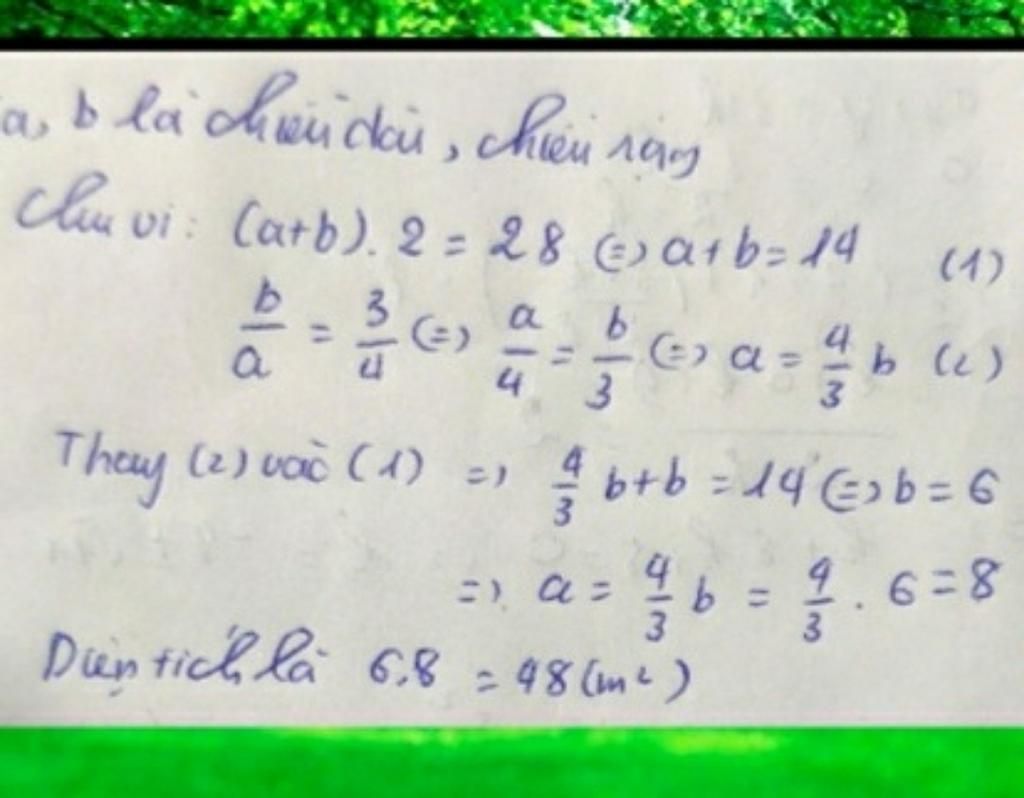 a, b là chiều dài, chiều rộng
Chu vi: (a+b). 2 = 28 (=) a+b = 14 (1)
b/a = 3/4 (=) a/4 = b/3 (=) a = 4/3 b (2)
Thay (2) vào (1) =) 4/3 b+b = 14 (=) b = 6
=) a = 4/3 b = 4/3 . 6 = 8
Diện tích là 6.8 = 48 (m²)